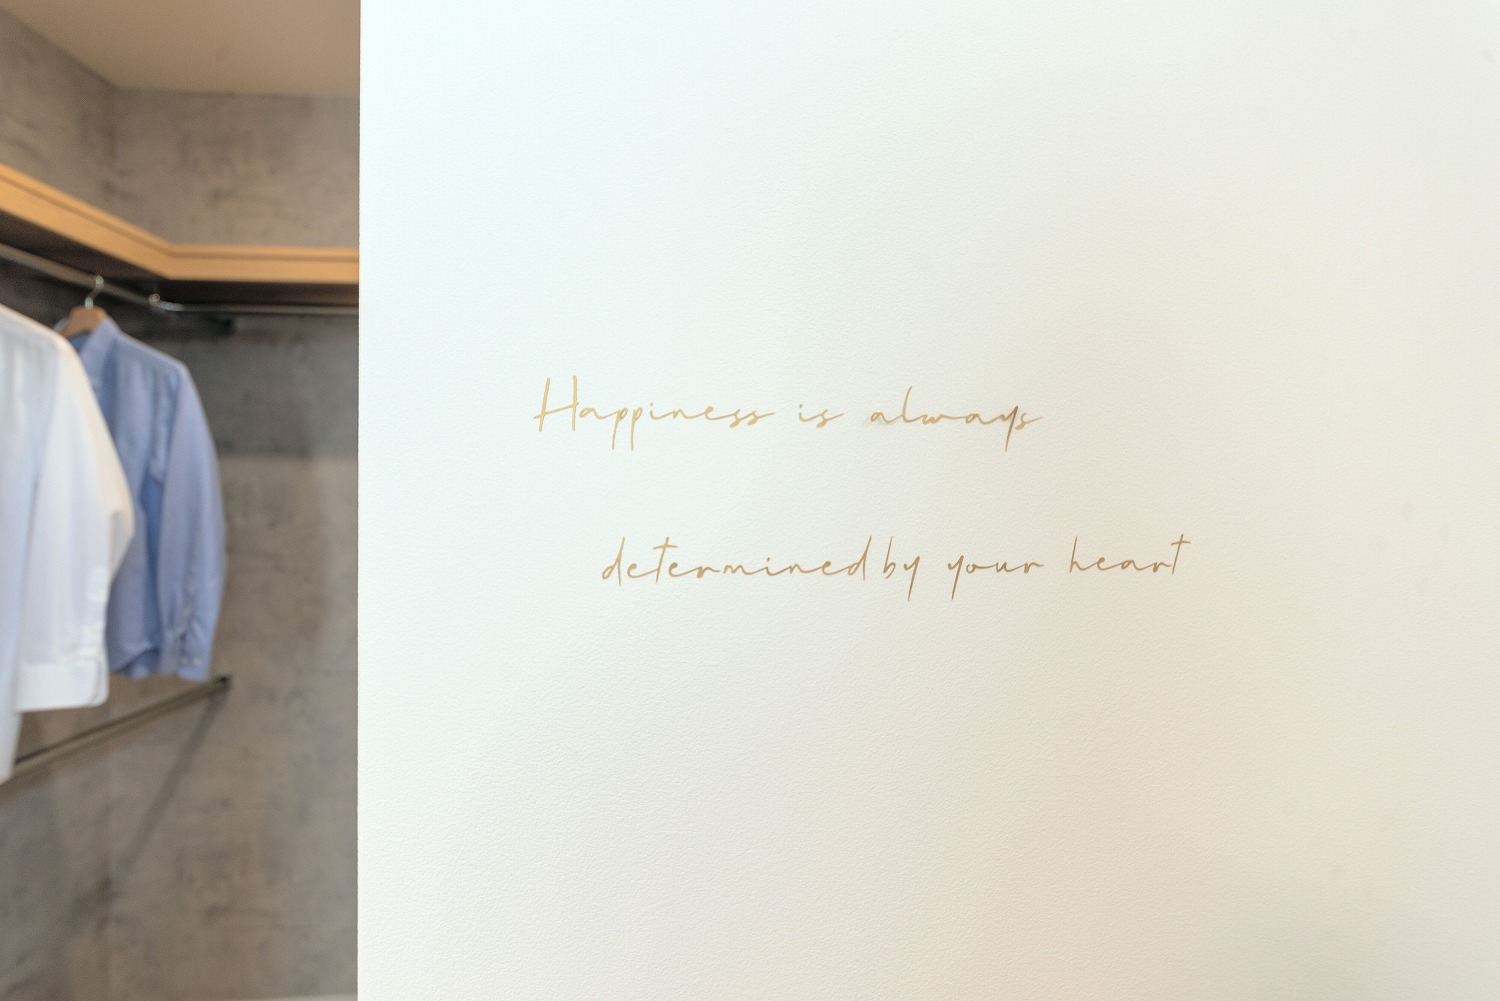 Happiness is always
determined by your heart